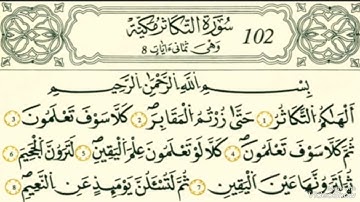 سُورَةُ التَّكَاثُرِ مَكِّيَّة 102
وَهِيَ ثَمَانِي ءَايَات 8
بِسْمِ اللَّهِ الرَّحْمَٰنِ الرَّحِيمِ
أَلْهَاكُمُ التَّكَاثُرُ 1 حَتَّىٰ زُرْتُمُ الْمَقَابِرَ 2 كَلَّا سَوْفَ تَعْلَمُونَ 3
ثُمَّ كَلَّا سَوْفَ تَعْلَمُونَ 4 كَلَّا لَوْ تَعْلَمُونَ عِلْمَ الْيَقِينِ 5 لَتَرَوُنَّ الْجَحِيمَ 6
ثُمَّ لَتَرَوُنَّهَا عَيْنَ الْيَقِينِ 7 ثُمَّ لَتُسْأَلُنَّ يَوْمَئِذٍ عَنِ النَّعِيمِ 8